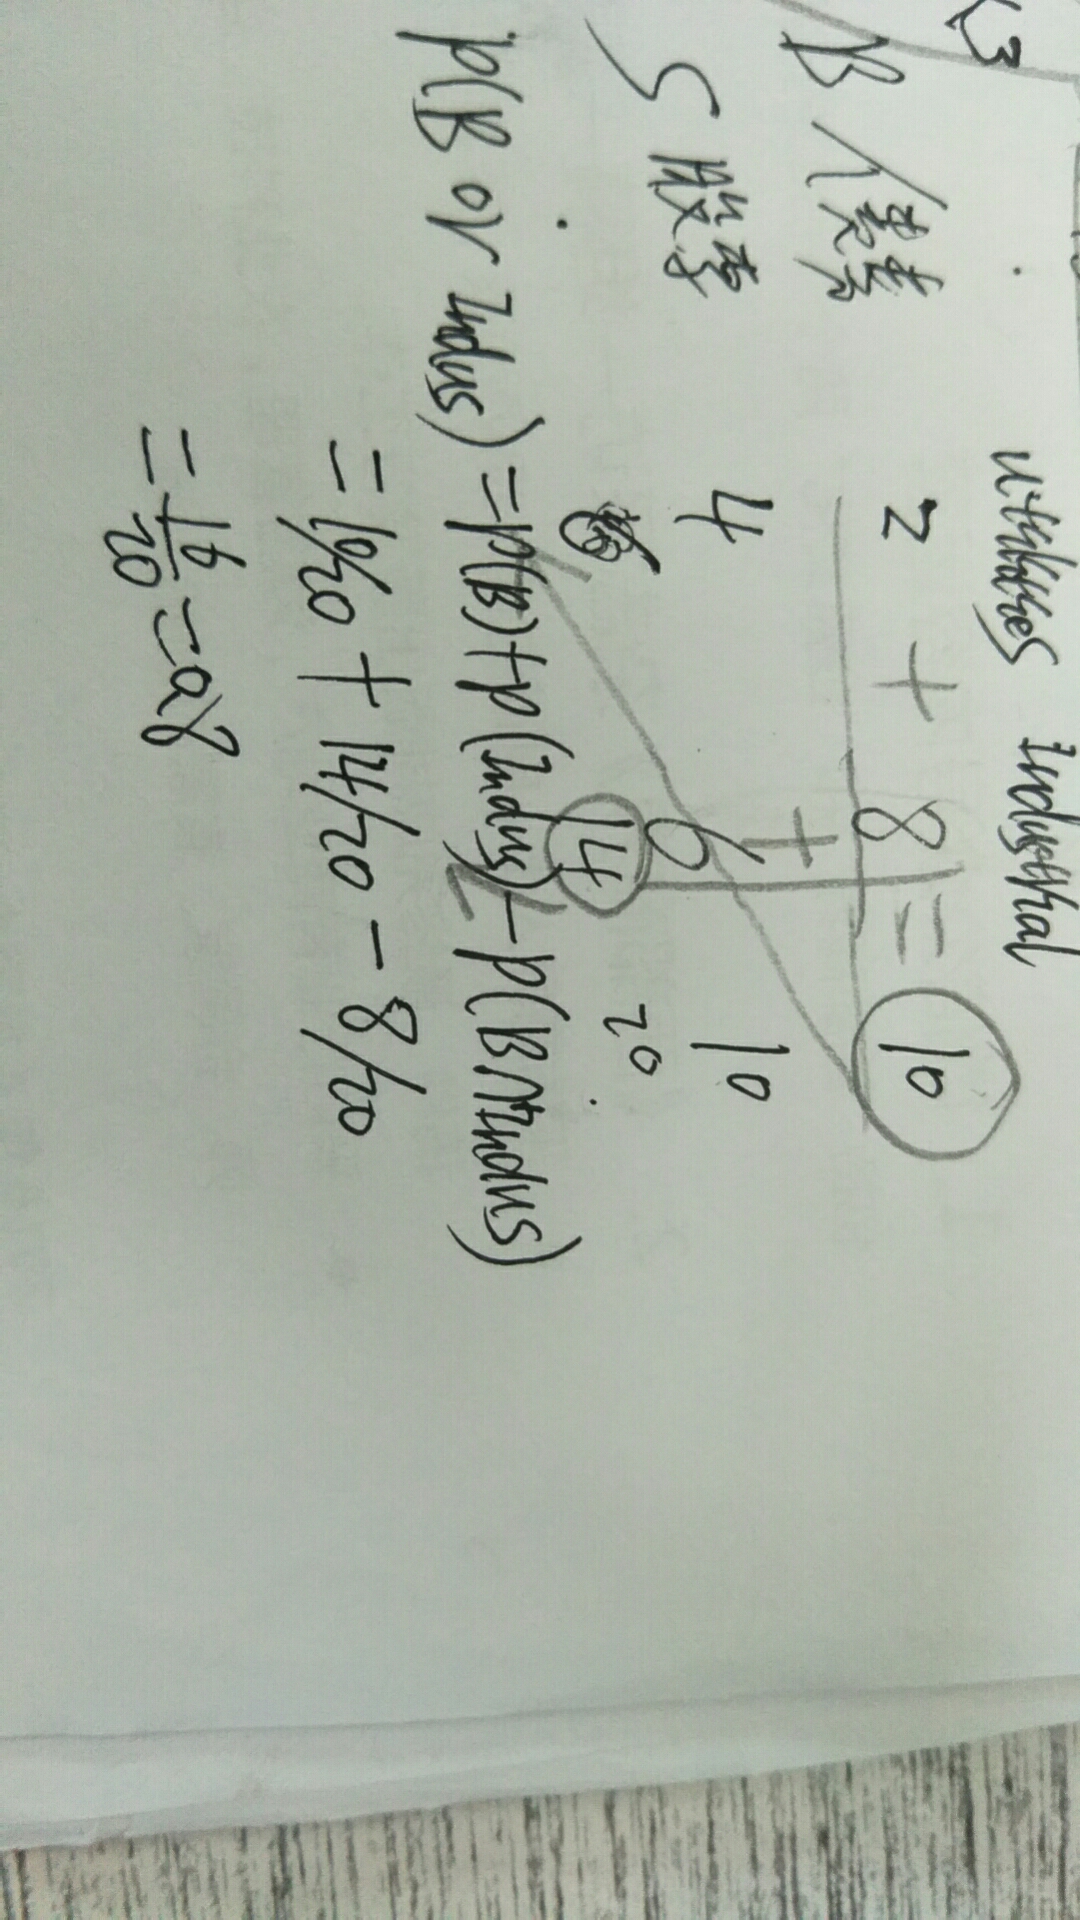 utilities Industrial
B 债券 2 + 8 = 10
+
S 股季 4 6 10
6 14 20
P(B or Indus) = P(B) + P(Indus) - P(B∩Indus)
= 10/20 + 14/20 - 8/20
= 16/20 = 0.8